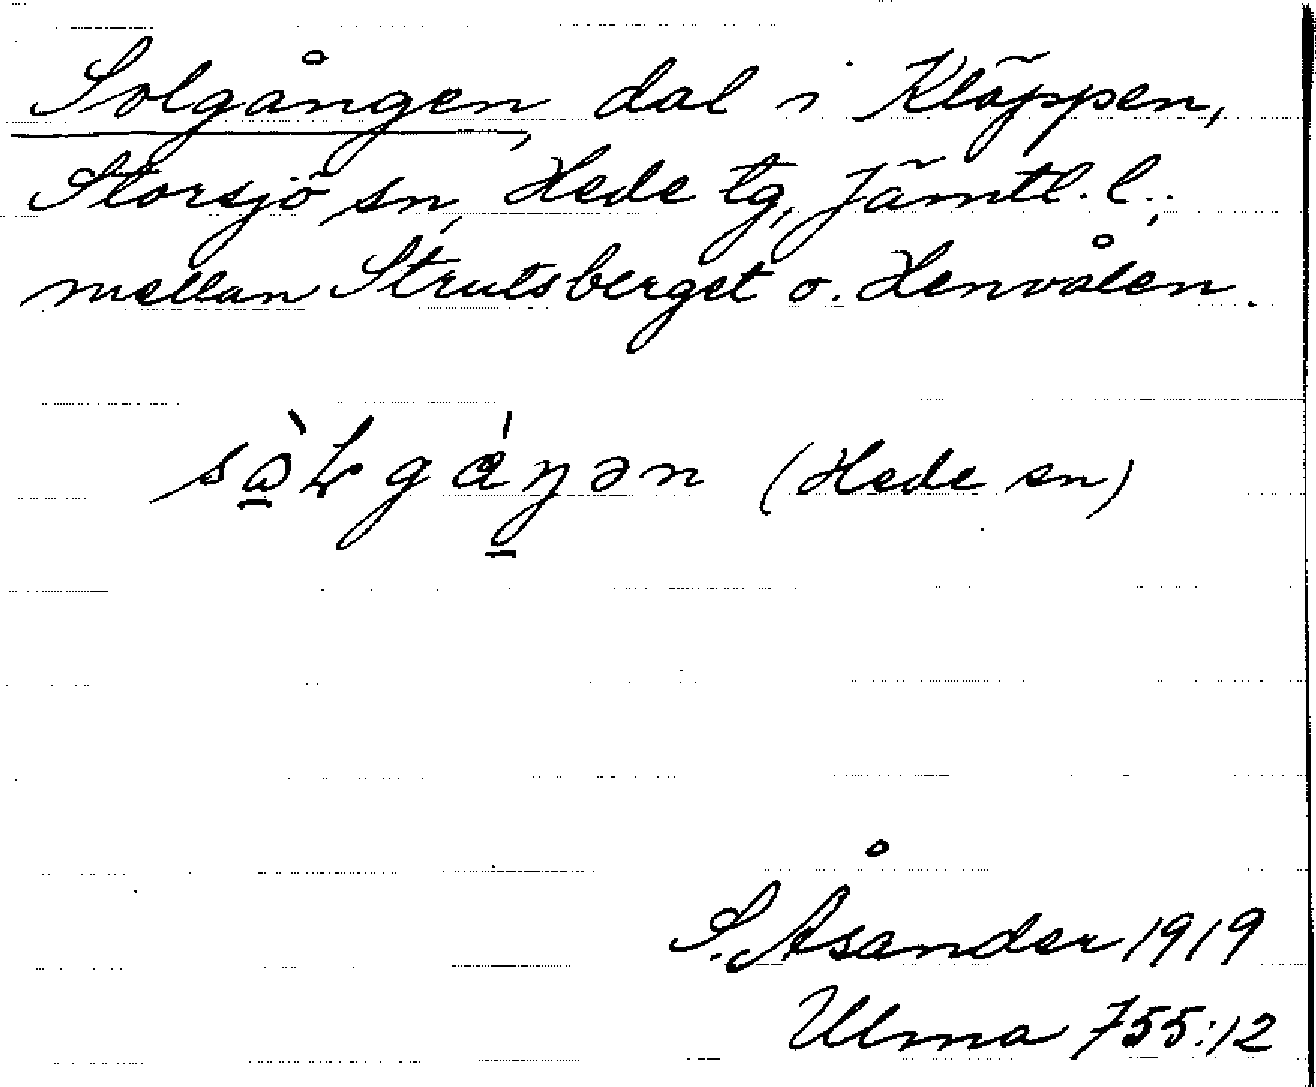 Solgången, dal i Kläppen,
Storsjö sn, Hede tg, Jämtl. l.;
mellan Strutsberget o. Henvålen.
(Hede sn)
S. Åsander 1919
Ulma 755:12